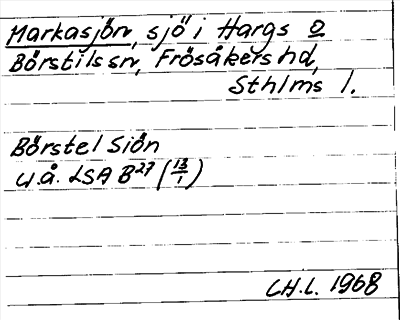 Markasjön, sjö i Hargs o
Börstils sn, Frösåkers hd,
Sthlms l.
Börstel Siön
u.å. LSA B27 (13/1)
CH.L. 1968